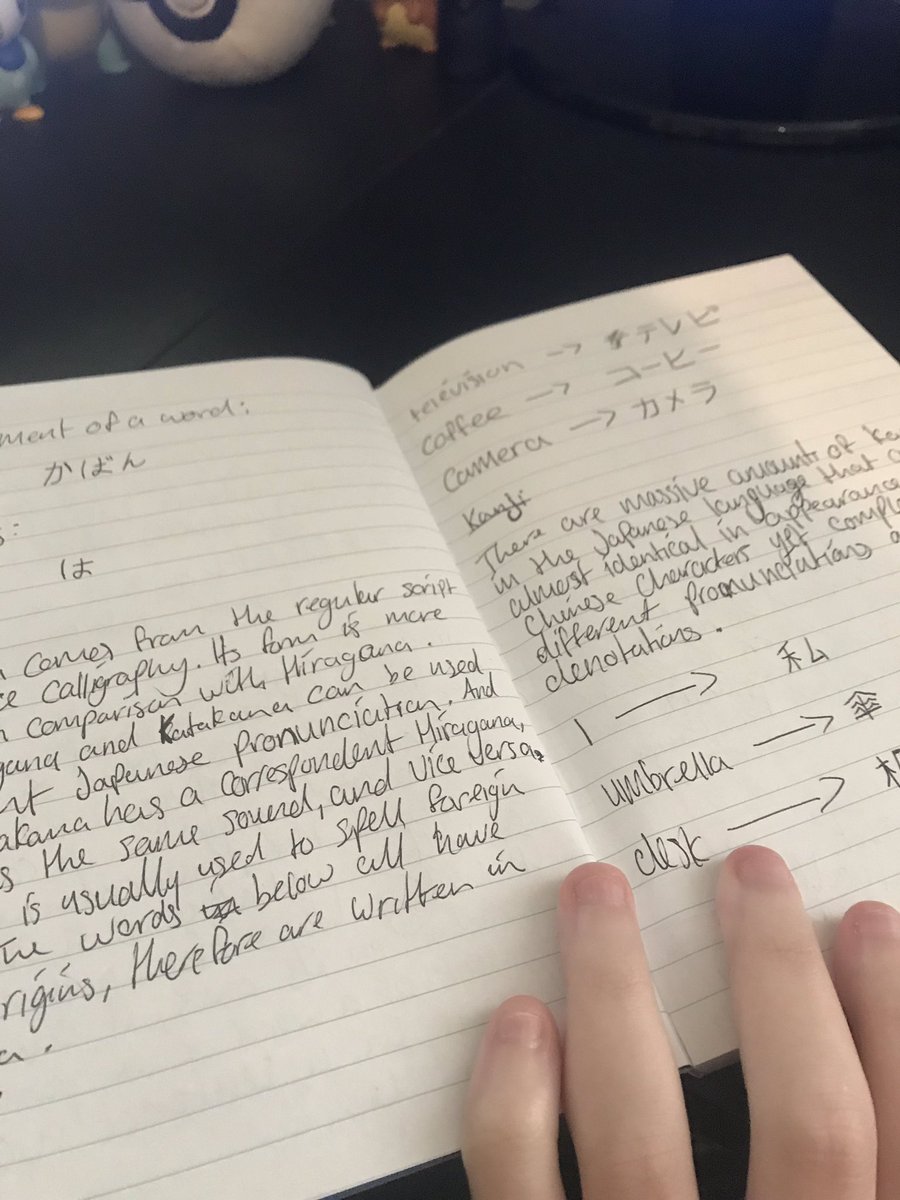 ment of a word:
かばん
s:
は
comes from the regular script
ce Calligraphy. Its form is more
n comparison with Hiragana.
gana and Katakana can be used
nt Japanese pronunciation. And
akana has a correspondent Hiragana,
s the same sound, and vice versa.
is usually used to spell foreign
The words below all have
rigins, therefore are written in
a.
television -> テレビ
coffee -> コーヒー
camera -> カメラ
Kanji
There are massive amounts of Ka
in the Japanese language that a
almost identical in appearance
Chinese characters yet comple
different pronunciations a
denotations.
I -> 私
umbrella -> 傘
desk ->